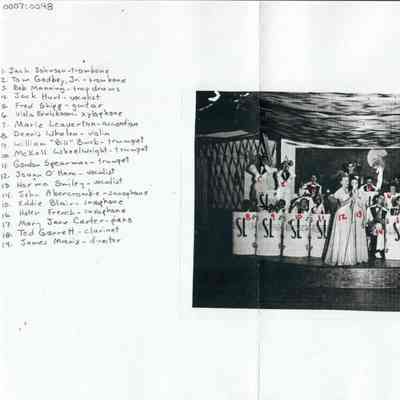 0007:0098
1. Jack Johnson-trombone
2. Tom Godbey, Jr. - trombone
3. Bob Manning - trap drums
4. Jack Hurt - vocalist
5. Fred Shipp - guitar
6. Viola xylophone
7. Marie Leaverton - accordion
8. Dennis Whalen - violin
9. William "Bill" Burk - trumpet
10. McKell Wheelwright - trumpet
11. Gordon Spearman - trumpet
12. O'Hara - vocalist
13. Norma Smiley - vocalist
14. John Abercrombie - saxophone
15. Eddie Blair - saxophone
16. Helen French - saxophone
17. Mary Jane Carter - piano
18. Ted Garrett - clarinet
19. James Morris - director
SL SL SL SL
8 9 10 11 12 13 14